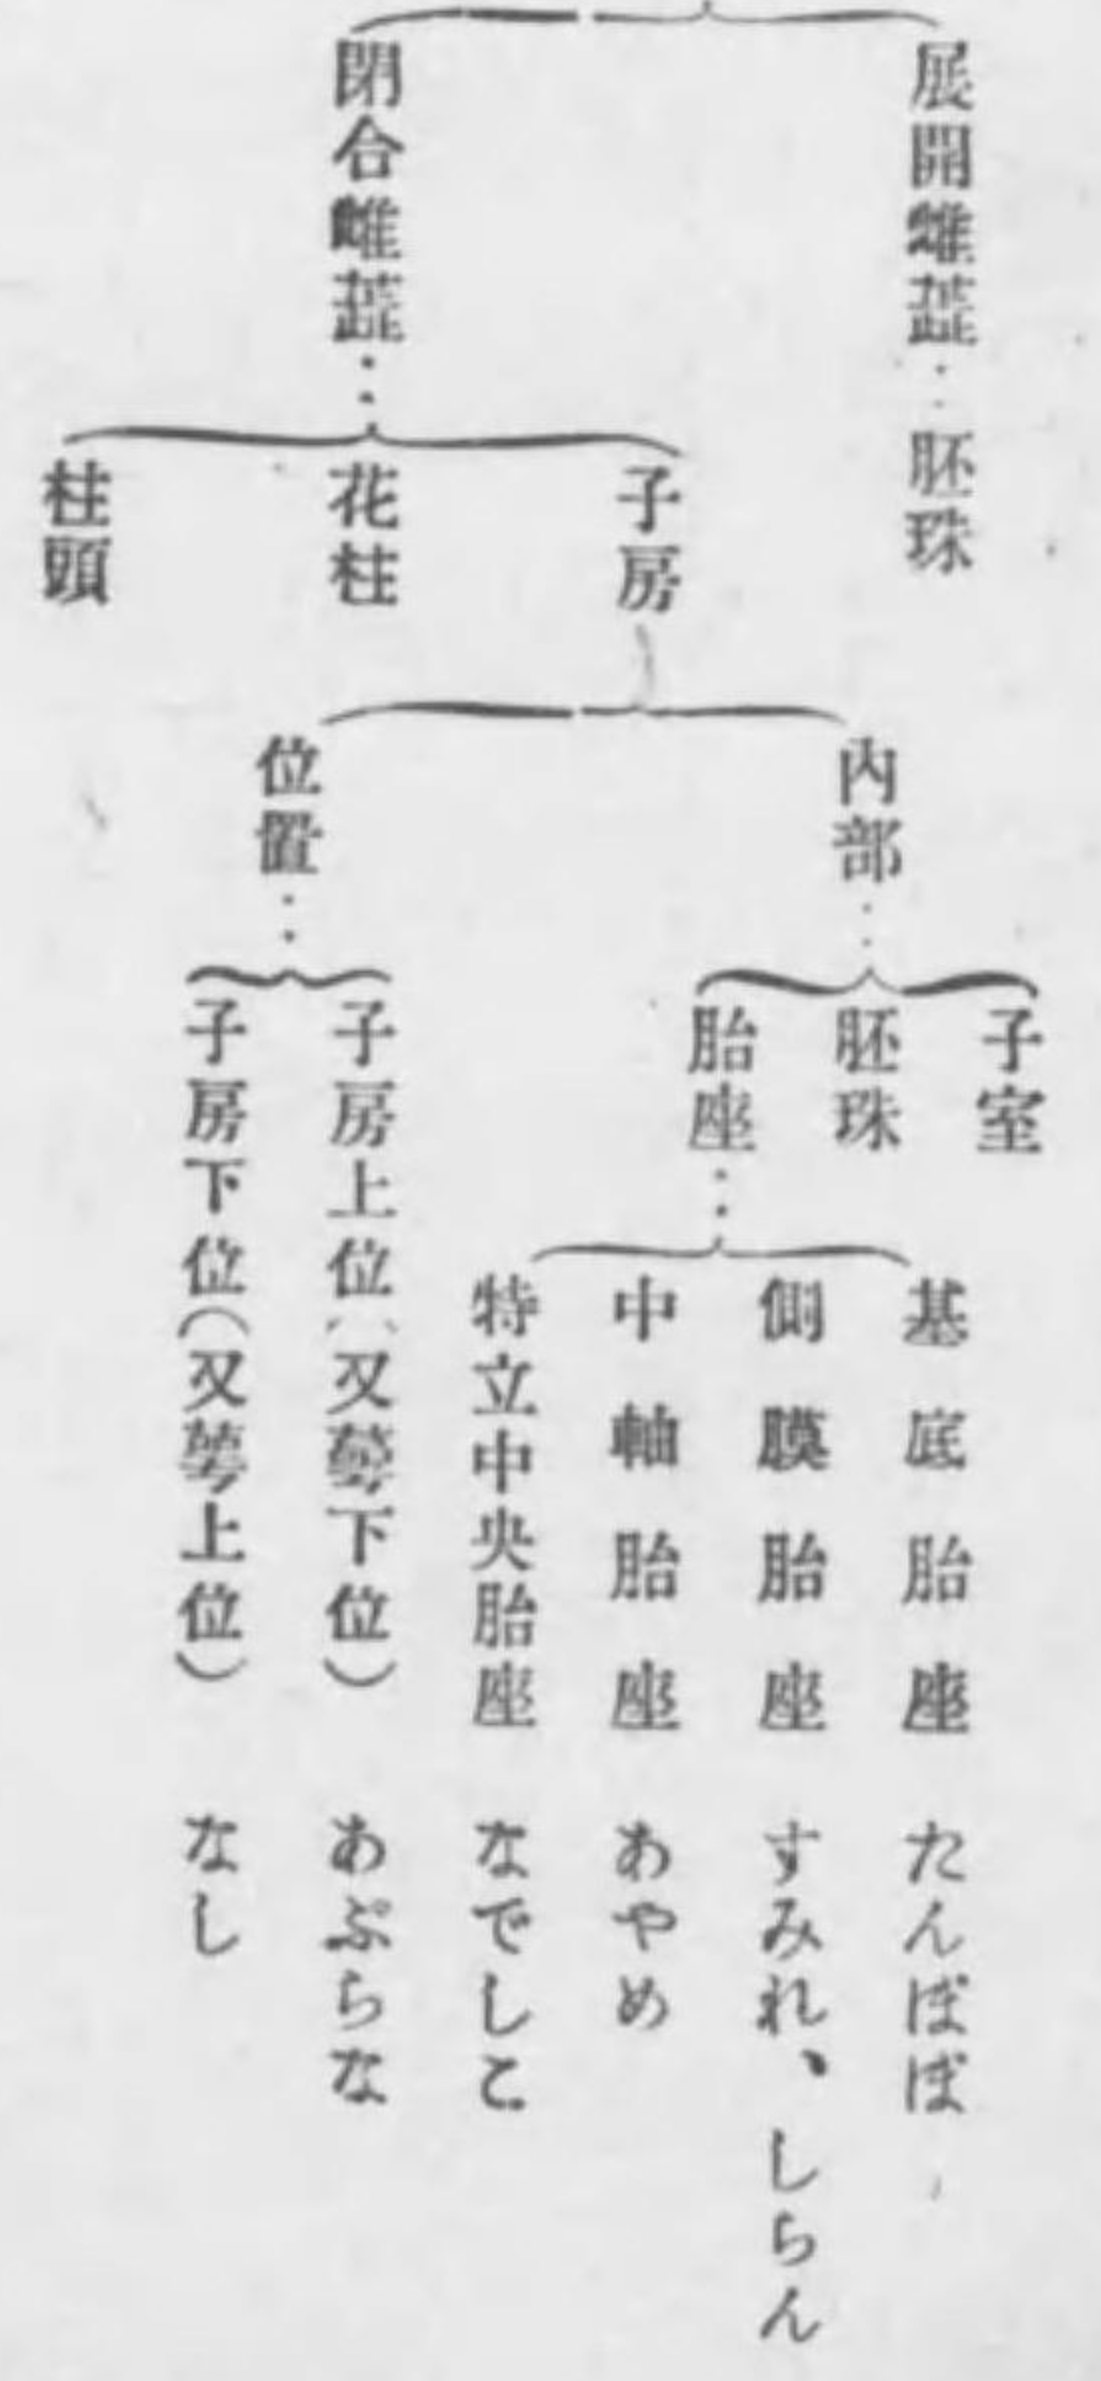 展開雌蕋‥胚珠
閉合雌蕋‥
子房
花柱
柱頭
內部‥
位置‥
子室
胚珠
胎座‥
基底胎座 たんぽぽ
側膜胎座 すみれ、しらん
中軸胎座 あやめ
特立中央胎座 なでしこ
子房上位(又蕚下位) あぶらな
子房下位(又蕚上位) なし